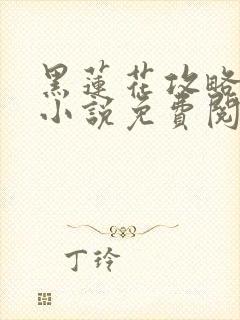 黑蓮花攻略
小說免費閱
丁玲